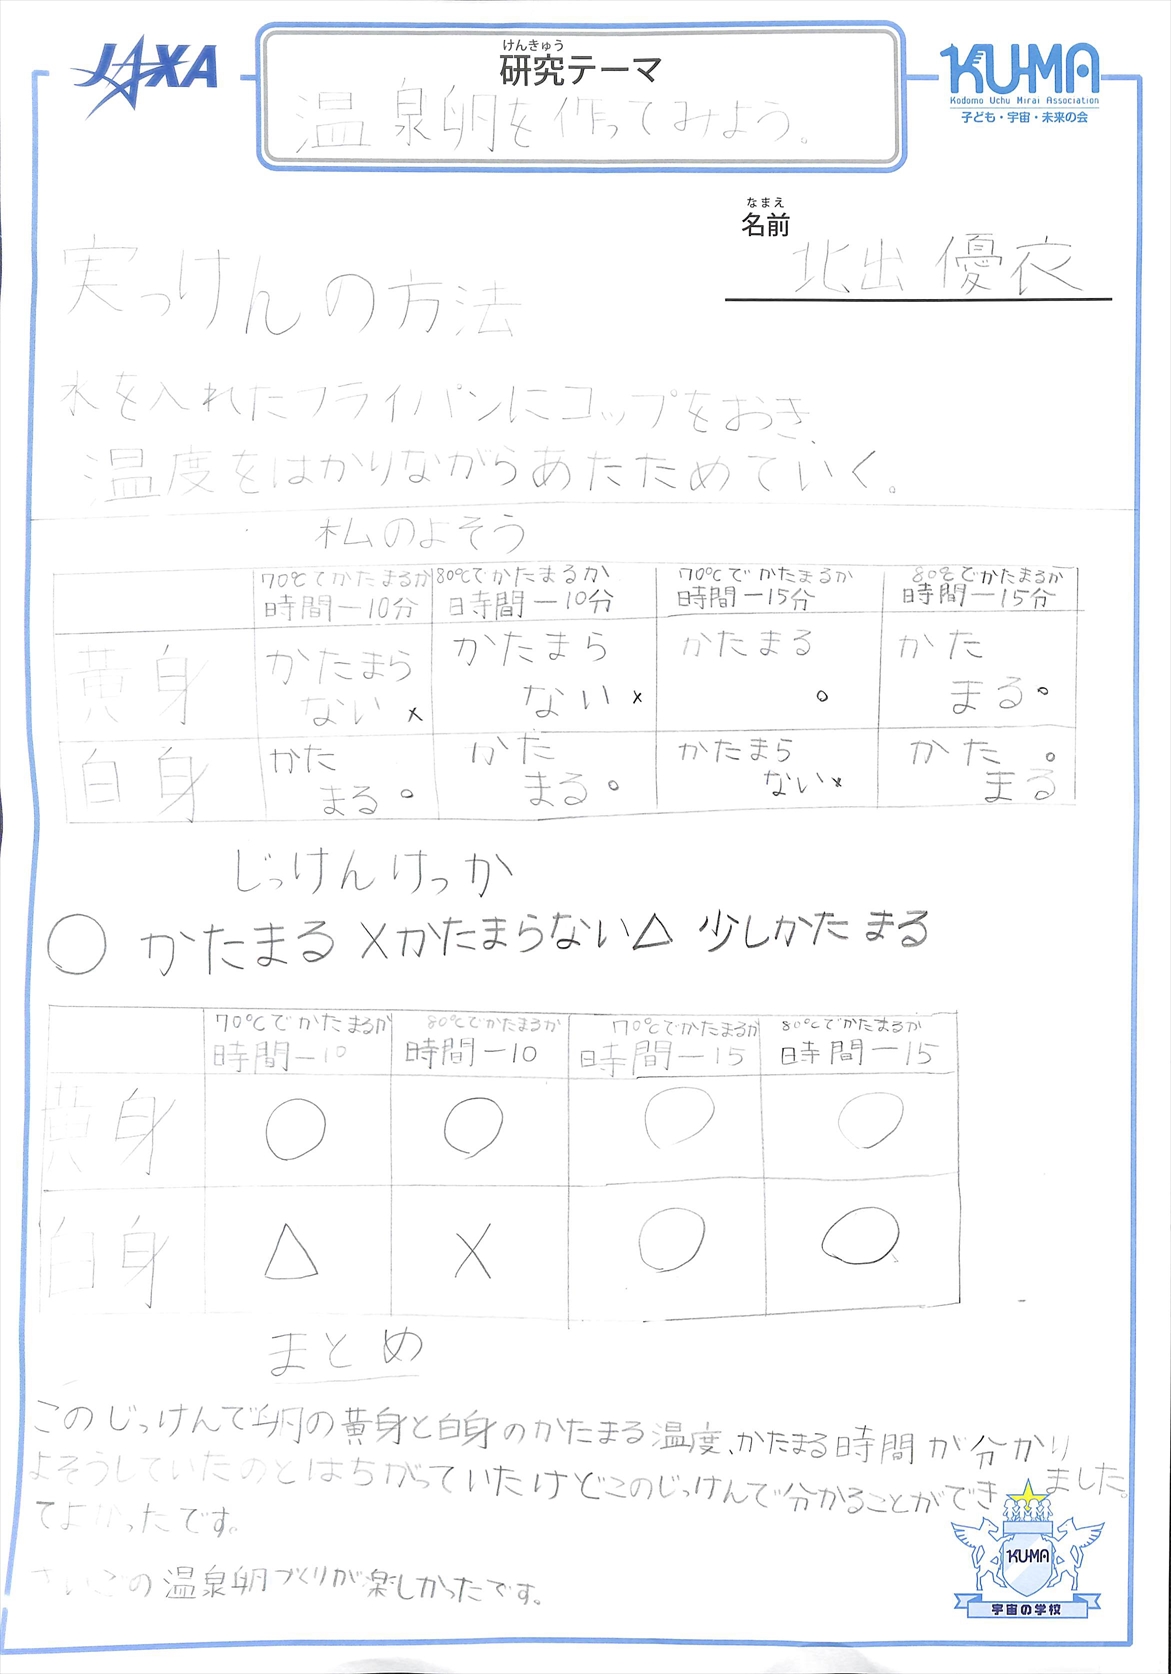 JAXA
けんきゅう
研究テーマ
温泉卵を作ってみよう。
KU-MA
Kodomo Uchu Mirai Association
子ども・宇宙・未来の会
なまえ
名前
北出 優衣
実っけんの方法
水を入れたフライパンにコップをおき、
温度をはかりながらあたためていく。
私のよそう
70℃でかたまるか 80℃でかたまるか 70℃でかたまるか 80℃でかたまるか
時間ー10分 時間ー10分 時間ー15分 時間ー15分
黄身 かたまら かたまら かたまる かた
ない× ない× ○ まる○
白身 かた かた かたまら かた ○
まる○ まる○ ない× まる
じっけんけっか
○ かたまる ×かたまらない△ 少しかたまる
70℃でかたまるか 80℃でかたまるか 70℃でかたまるか 80℃でかたまるか
時間ー10 時間ー10 時間ー15 時間ー15
黄身 ○ ○ ○ ○
白身 △ × ○ ○
まとめ
このじっけんで卵の黄身と白身のかたまる温度、かたまる時間が分かり
ました。
よそうしていたのとはちがっていたけどこのじっけんで分かることができ
てよかったです。
さいごの温泉卵づくりが楽しかったです。
KU-MA
宇宙の学校